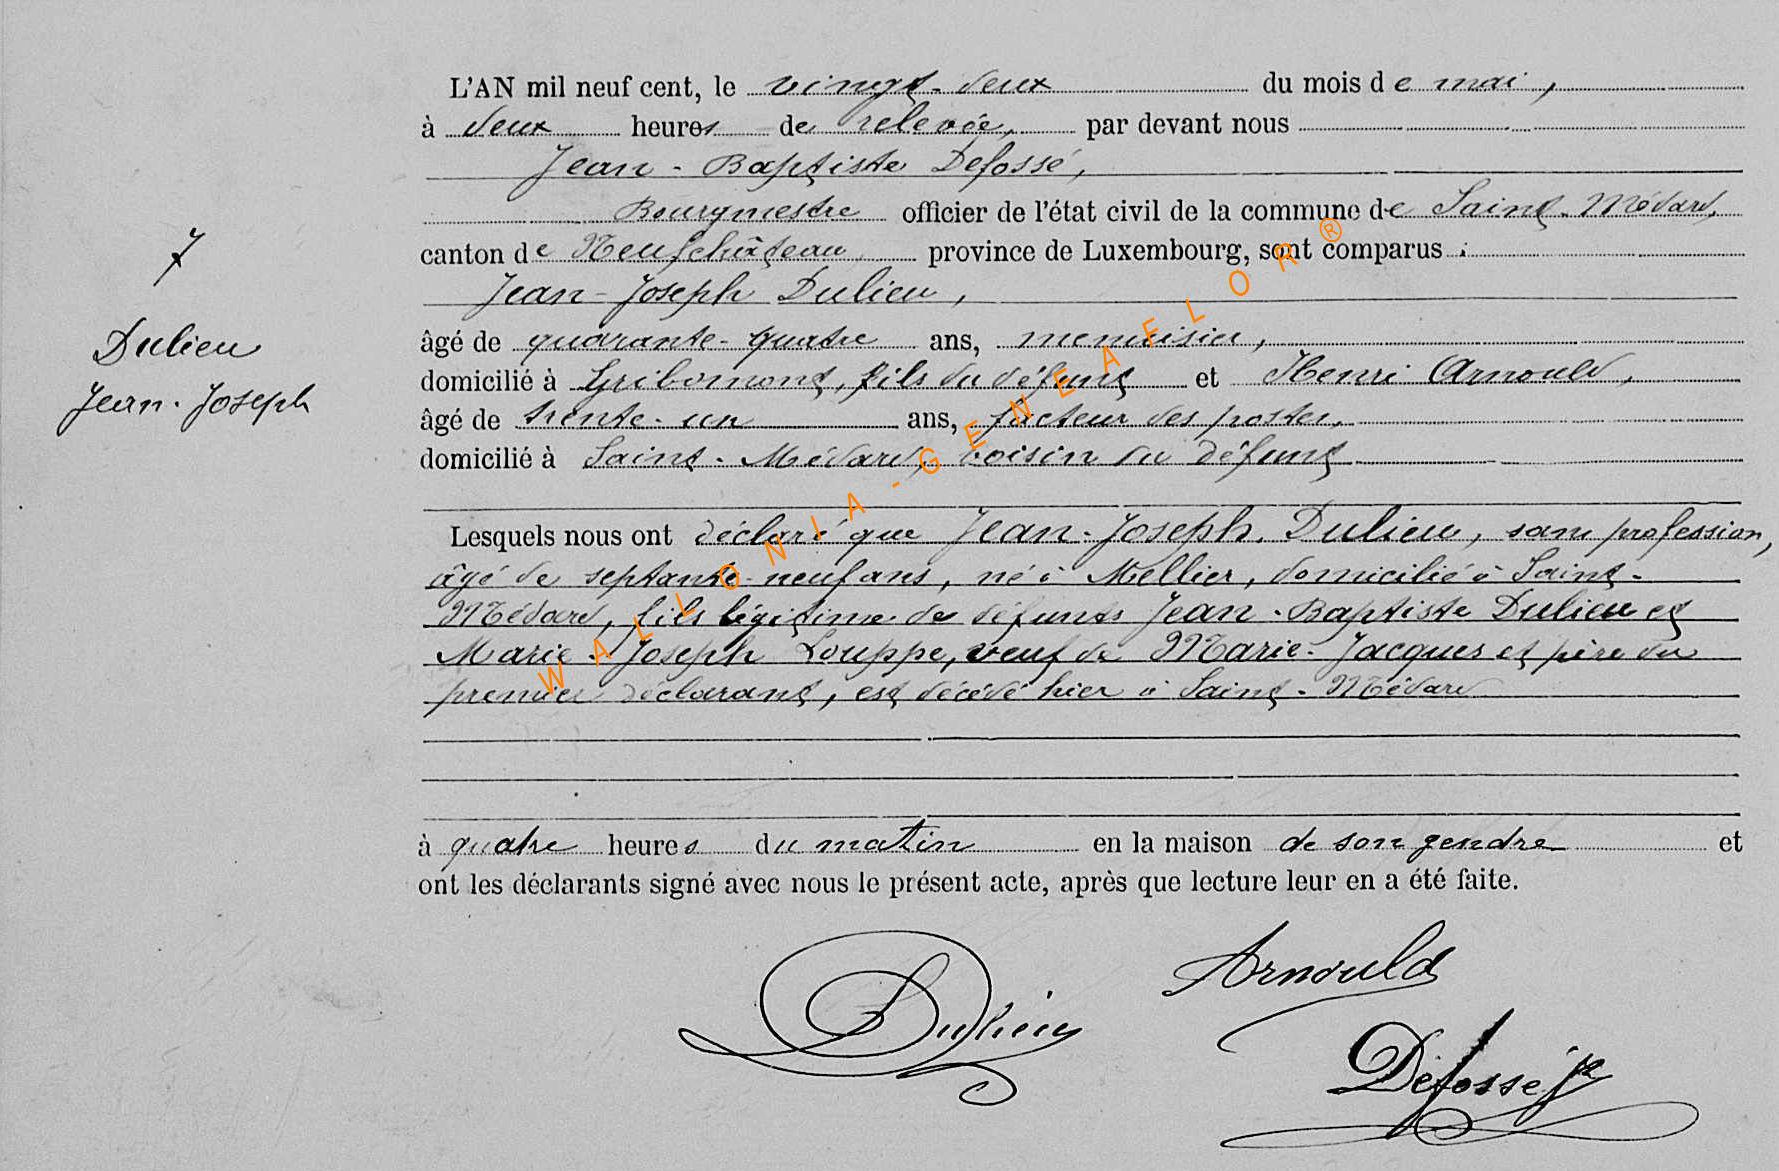 L'AN mil neuf cent, le vingt-deux du mois de mai,
à deux heures de relevée, par devant nous
Jean-Baptiste Defossé,
Bourgmestre officier de l'état civil de la commune de Saint-Médard,
canton de Neufchâteau, province de Luxembourg, sont comparus :
Jean-Joseph Dulieu,
âgé de quarante-quatre ans, menuisier,
domicilié à Gribomont, fils du défunt et Henri Arnould,
âgé de trente-un ans, facteur des postes,
domicilié à Saint-Médard, voisin du défunt
7
Dulieu
Jean-Joseph
Lesquels nous ont déclaré que Jean-Joseph Dulieu, sans profession,
âgé de septante-neuf ans, né à Mellier, domicilié à Saint-
Médard, fils légitime de défunts Jean-Baptiste Dulieu et
Marie-Joseph Louppe, veuf de Marie-Jacques et père du
premier déclarant, est décédé hier à Saint-Médard
à quatre heures du matin en la maison de son gendre et
ont les déclarants signé avec nous le présent acte, après que lecture leur en a été faite.
Dulieu
Arnould
Defossé Jh
WALLONIA-GENEAELOR®